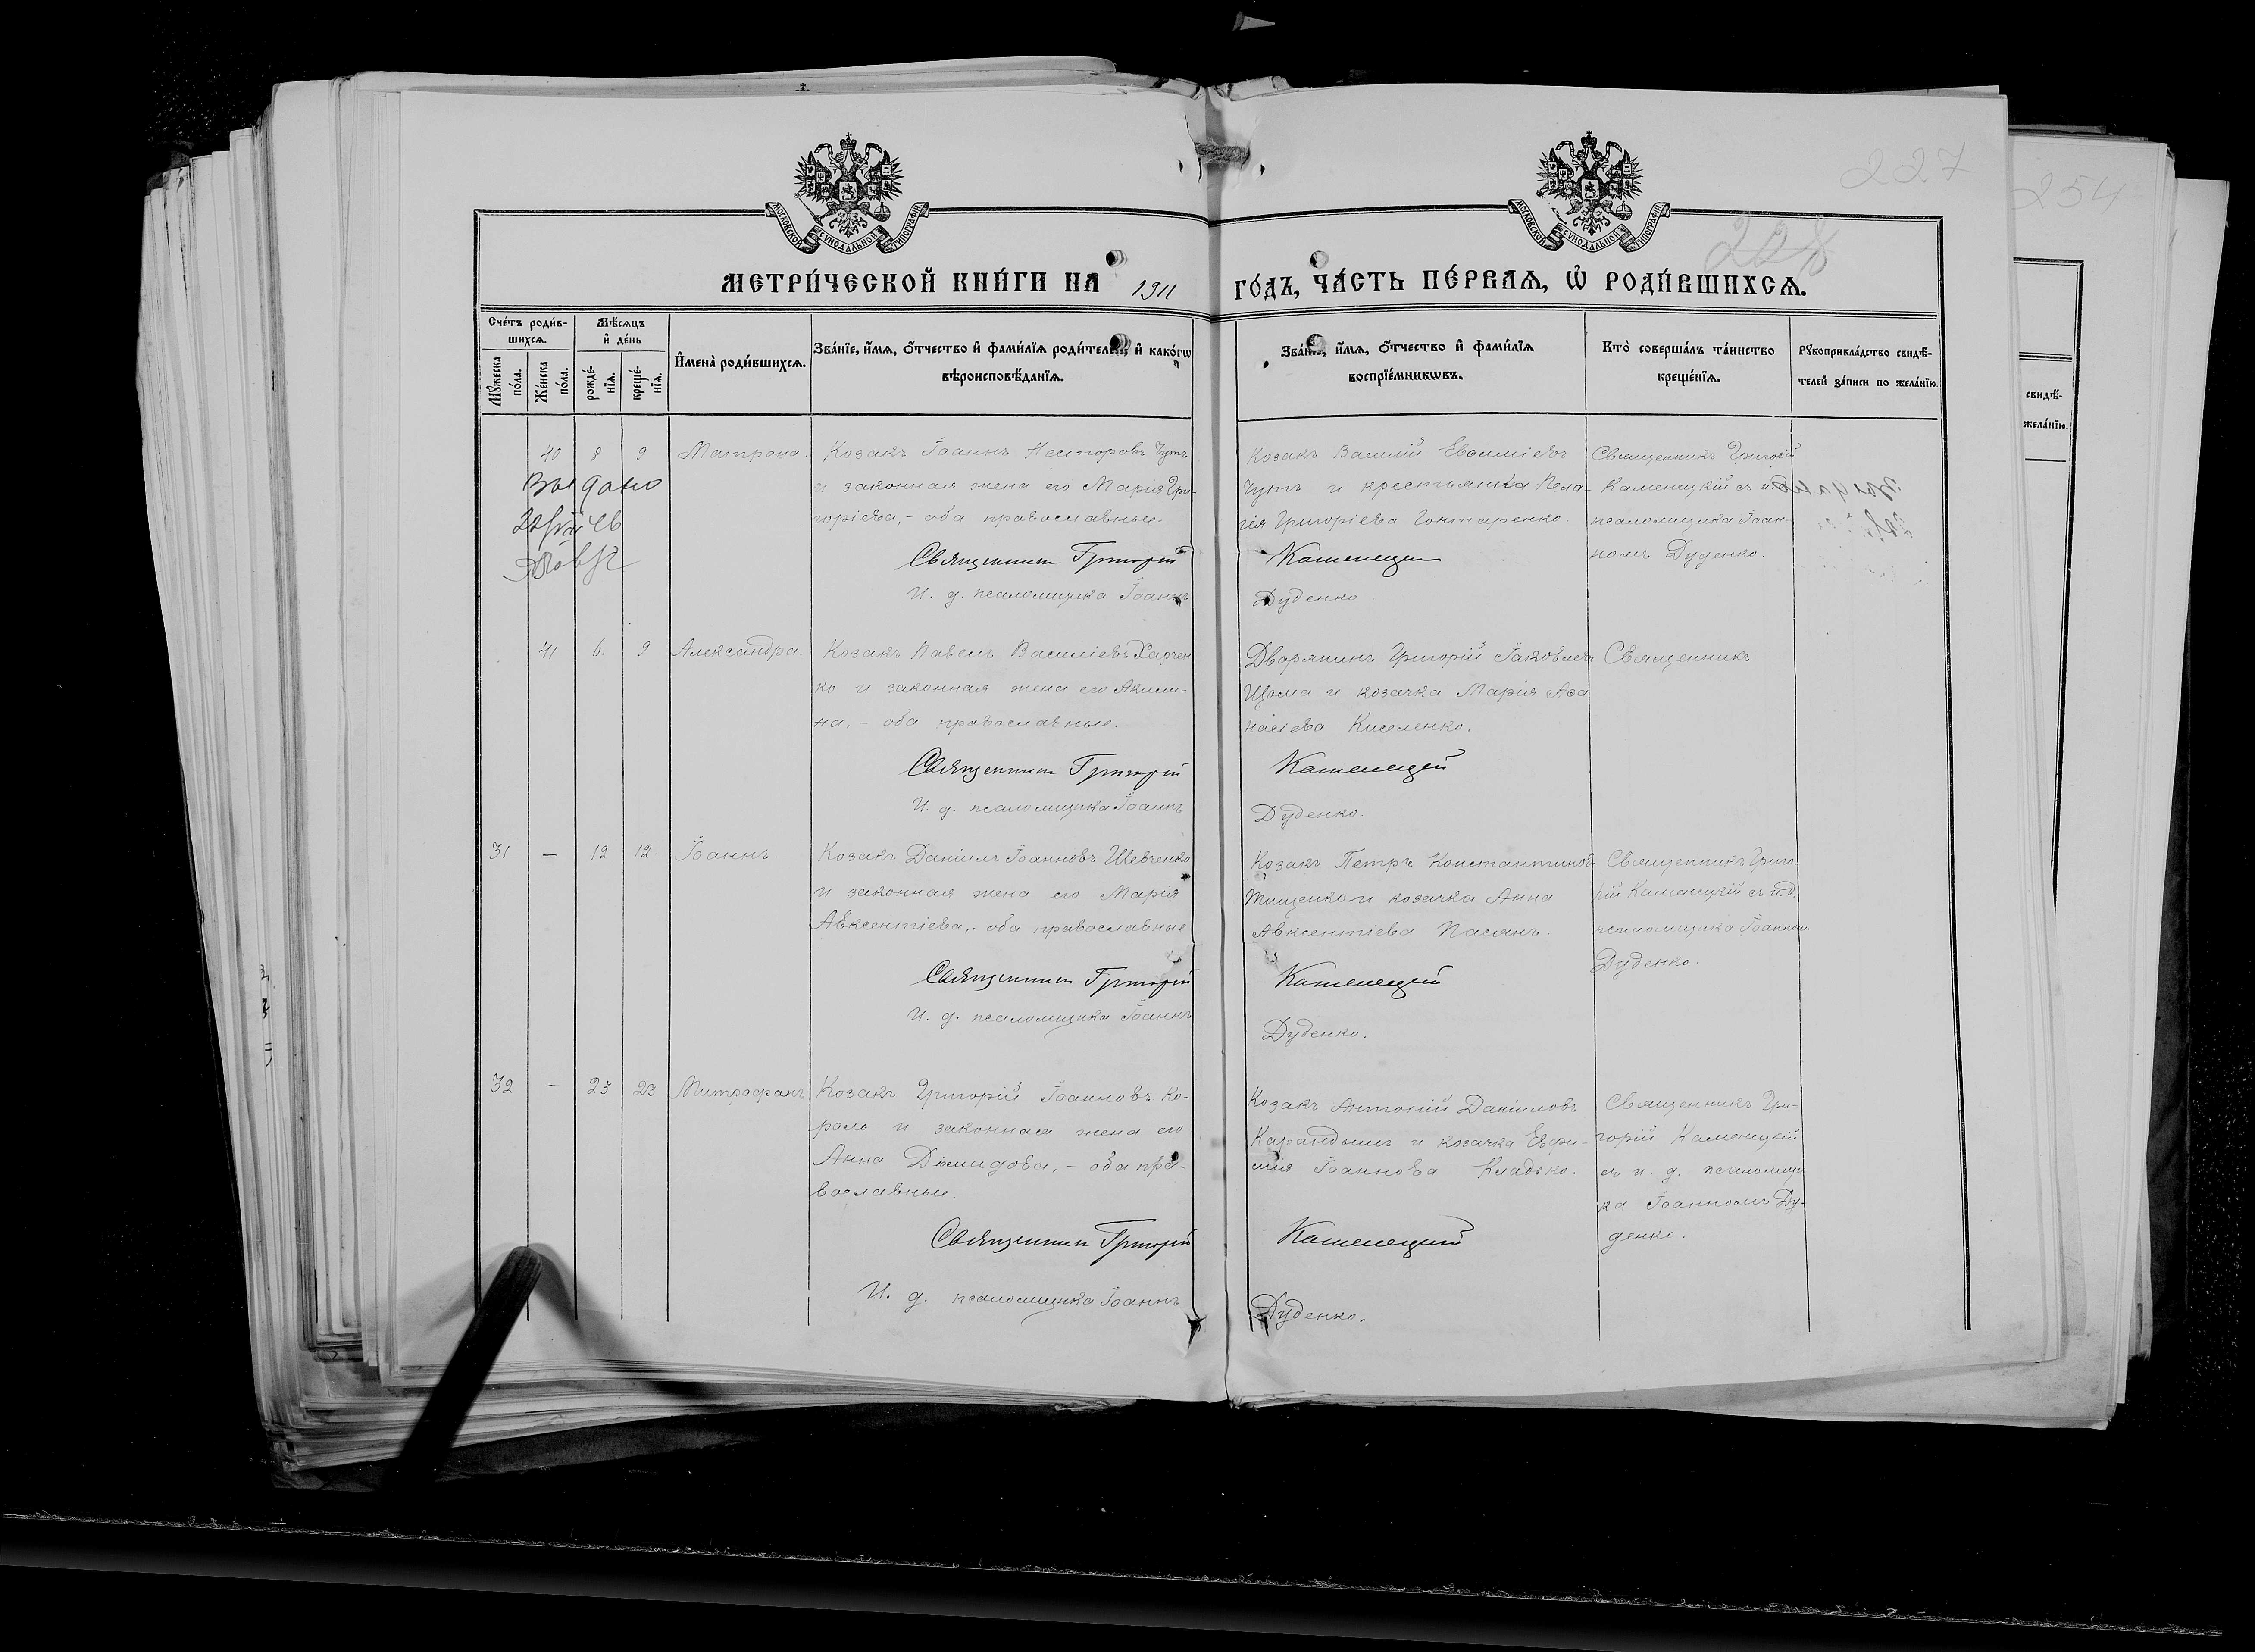 227
254
228
МОСКОВСКОЙ СУНОДАЛЬНОЙ ТИПОГРАФІИ
МОСКОВСКОЙ СУНОДАЛЬНОЙ ТИПОГРАФІИ
МЕТРИ́ЧЕСКОЙ КНИ́ГИ НА 1911 ГО́ДЪ, ЧА́СТЬ ПЕ́РВАѦ, Ѡ РОДИ́ВШИХСѦ.
Сче́тъ роди́в-
шихсѧ.
Мѣ́сѧцъ
и҆ де́нь
Мꙋ́жеска по́ла.
Же́нска по́ла.
рожде́-
нїѧ.
креще́-
нїѧ.
И҆мена̀ роди́вшихсѧ.
Зва́нїе, и҆́мѧ, ѻ҆́тчество и҆ фами́лїѧ роди́телей, и҆ како́гѡ
вѣроисповѣ́данїѧ.
Зва́нїе, и҆́мѧ, ѻ҆́тчество и҆ фами́лїѧ
воспрїе́мникѡвъ.
Кто̀ соверша́лъ та́инство
креще́нїѧ.
Рꙋкоприкла́дство свидѣ́-
телей за́писи по жела́нїю.
свидѣ́-
жела́нїю.
40 8 9 Матрона.
Козакъ Іоаннъ Несторовъ Чутъ
и законная жена его Марія Гри-
горіева,- оба православные.
Священник Григорій
И. д. псаломщика Іоаннъ
Выдано
Козакъ Василій Евѳиміевъ
Чутъ и крестьянка Пела-
гія Григоріева Гонтаренко.
Каменецкій
Дуденко
Священникъ Григорій
Каменецкій съ и. д.
псаломщика Іоан-
номъ Дуденко.
41 6. 9 Александра.
Козакъ Павелъ Василіевъ Харчен
ко и законная жена его Акили-
на,- оба православные.
Священник Григорій
И. д. псаломщика Іоаннъ
Дворянинъ Григорій Іаковлевъ
Щома и козачка Марія Аѳа
насіева Киселенко.
Каменецкій
Дуденко.
Священникъ
31 — 12 12 Іоаннъ.
Козакъ Даніилъ Іоанновъ Шевченко
и законная жена его Марія
Авксентіева,- оба православные
Священник Григорій
И. д. псаломщика Іоаннъ
Козакъ Петръ Константиновъ
Тищенко и козачка Анна
Авксентіева
Каменецкій
Дуденко.
Священникъ Григо-
рій Каменецкій съ и. д.
псаломщика Іоанномъ
Дуденко.
32 — 23 23 Митрофанъ
Козакъ Григорій Іоанновъ Ко-
роль и законная жена его
Анна Діомидова,- оба пра-
вославные.
Священник Григорій
И. д. псаломщика Іоаннъ
Козакъ Антоній Даніиловъ
Карандышъ и козачка Евфи-
мія Іоаннова Кладько.
Каменецкій
Дуденко.
Священникъ Гри-
горій Каменецкій
съ и. д. псаломщи
ка Іоанномъ Ду-
денко.